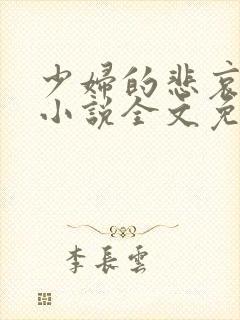 少婦的悲哀
小說全文免
李長雲